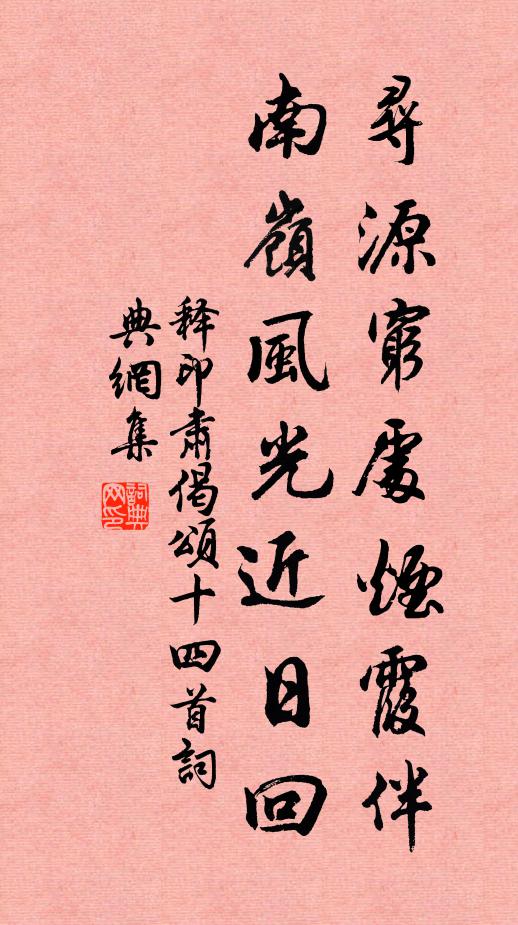 尋源窮處煙霞伴
南嶺風光近日回
释印肅偈頌十四首詞
典網集
詞典
网印